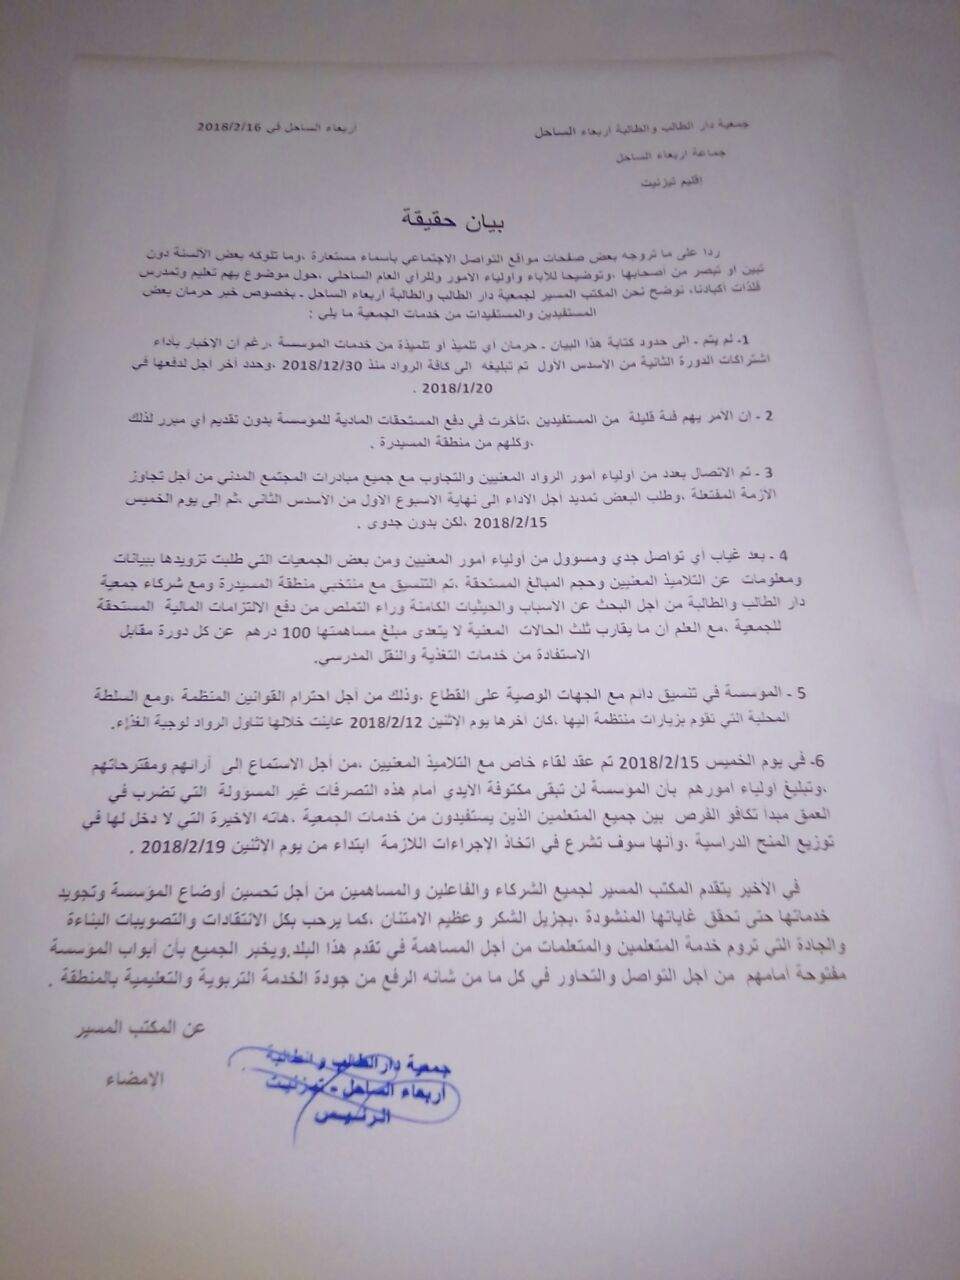 جمعية دار الطالب والطالبة اربعاء الساحل
اربعاء الساحل في 2018/2/16
جماعة اربعاء الساحل
إقليم تيزنيت
بيان حقيقة
ردا على ما تروجه بعض صفحات مواقع التواصل الاجتماعي بأسماء مستعارة ،وما تلوكه بعض الألسنة دون
تبين او تبصر من أصحابها ،وتوضيحا للآباء وأولياء الامور وللرأي العام الساحلي ،حول موضوع يهم تعليم وتمدرس
فلذات أكبادنا، نوضح نحن المكتب المسير لجمعية دار الطالب والطالبة أربعاء الساحل ـ بخصوص خبر حرمان بعض
المستفيدين والمستفيدات من خدمات الجمعية ما يلي :
1- لم يتم ـ الى حدود كتابة هذا البيان ـ حرمان أي تلميذ أو تلميذة من خدمات المؤسسة ،رغم أن الإخبار بأداء
اشتراكات الدورة الثانية من الأسدس الأول تم تبليغه إلى كافة الرواد منذ 2018/12/30 ،وحدد آخر أجل لدفعها في
2018/1/20 .
2 - إن الامر يهم فئة قليلة من المستفيدين ،تأخرت في دفع المستحقات المادية للمؤسسة بدون تقديم أي مبرر لذلك
،وكلهم من منطقة المسيدرة .
3 - تم الاتصال بعدد من أولياء أمور الرواد المعنيين والتجاوب مع جميع مبادرات المجتمع المدني من أجل تجاوز
الأزمة المفتعلة ،وطلب البعض تمديد أجل الاداء إلى نهاية الاسبوع الاول من الأسدس الثاني ،ثم إلى يوم الخميس
2018/2/15 ،لكن بدون جدوى .
4 - بعد غياب أي تواصل جدي ومسؤول من أولياء أمور المعنيين ومن بعض الجمعيات التي طلبت تزويدها ببيانات
ومعلومات عن التلاميذ المعنيين وحجم المبالغ المستحقة ،تم التنسيق مع منتخبي منطقة المسيدرة ومع شركاء جمعية
دار الطالب والطالبة من أجل البحث عن الاسباب والحيثيات الكامنة وراء التملص من دفع الالتزامات المالية المستحقة
للجمعية ،مع العلم أن ما يقارب ثلث الحالات المعنية لا يتعدى مبلغ مساهمتها 100 درهم عن كل دورة مقابل
الاستفادة من خدمات التغذية والنقل المدرسي.
5 - المؤسسة في تنسيق دائم مع الجهات الوصية على القطاع ،وذلك من أجل احترام القوانين المنظمة ،ومع السلطة
المحلية التي تقوم بزيارات منتظمة إليها ،كان آخرها يوم الاثنين 2018/2/12 عاينت خلالها تناول الرواد لوجبة الغذاء.
6- في يوم الخميس 2018/2/15 تم عقد لقاء خاص مع التلاميذ المعنيين ،من أجل الاستماع إلى أرائهم ومقترحاتهم
،وتبليغ أولياء أمورهم بأن المؤسسة لن تبقى مكتوفة الأيدي أمام هذه التصرفات غير المسؤولة التي تضرب في
العمق مبدأ تكافؤ الفرص بين جميع المتعلمين الذين يستفيدون من خدمات الجمعية ،هاته الاخيرة التي لا دخل لها في
توزيع المنح الدراسية ،وأنها سوف تشرع في اتخاذ الاجراءات اللازمة ابتداء من يوم الإثنين 2018/2/19 .
في الأخير يتقدم المكتب المسير لجميع الشركاء والفاعلين والمساهمين من أجل تحسين أوضاع المؤسسة وتجويد
خدماتها حتى تحقق غاياتها المنشودة ،بجزيل الشكر وعظيم الامتنان ،كما يرحب بكل الانتقادات والتصويبات البناءة
والجادة التي تروم خدمة المتعلمين والمتعلمات من أجل المساهمة في تقدم هذا البلد.ويخبر الجميع بأن أبواب المؤسسة
مفتوحة أمامهم من أجل التواصل والتحاور في كل ما من شأنه الرفع من جودة الخدمة التربوية والتعليمية بالمنطقة .
عن المكتب المسير
الإمضاء
جمعية دار الطالب والطالبة
أربعاء الساحل - تيزنيت
الرئيس